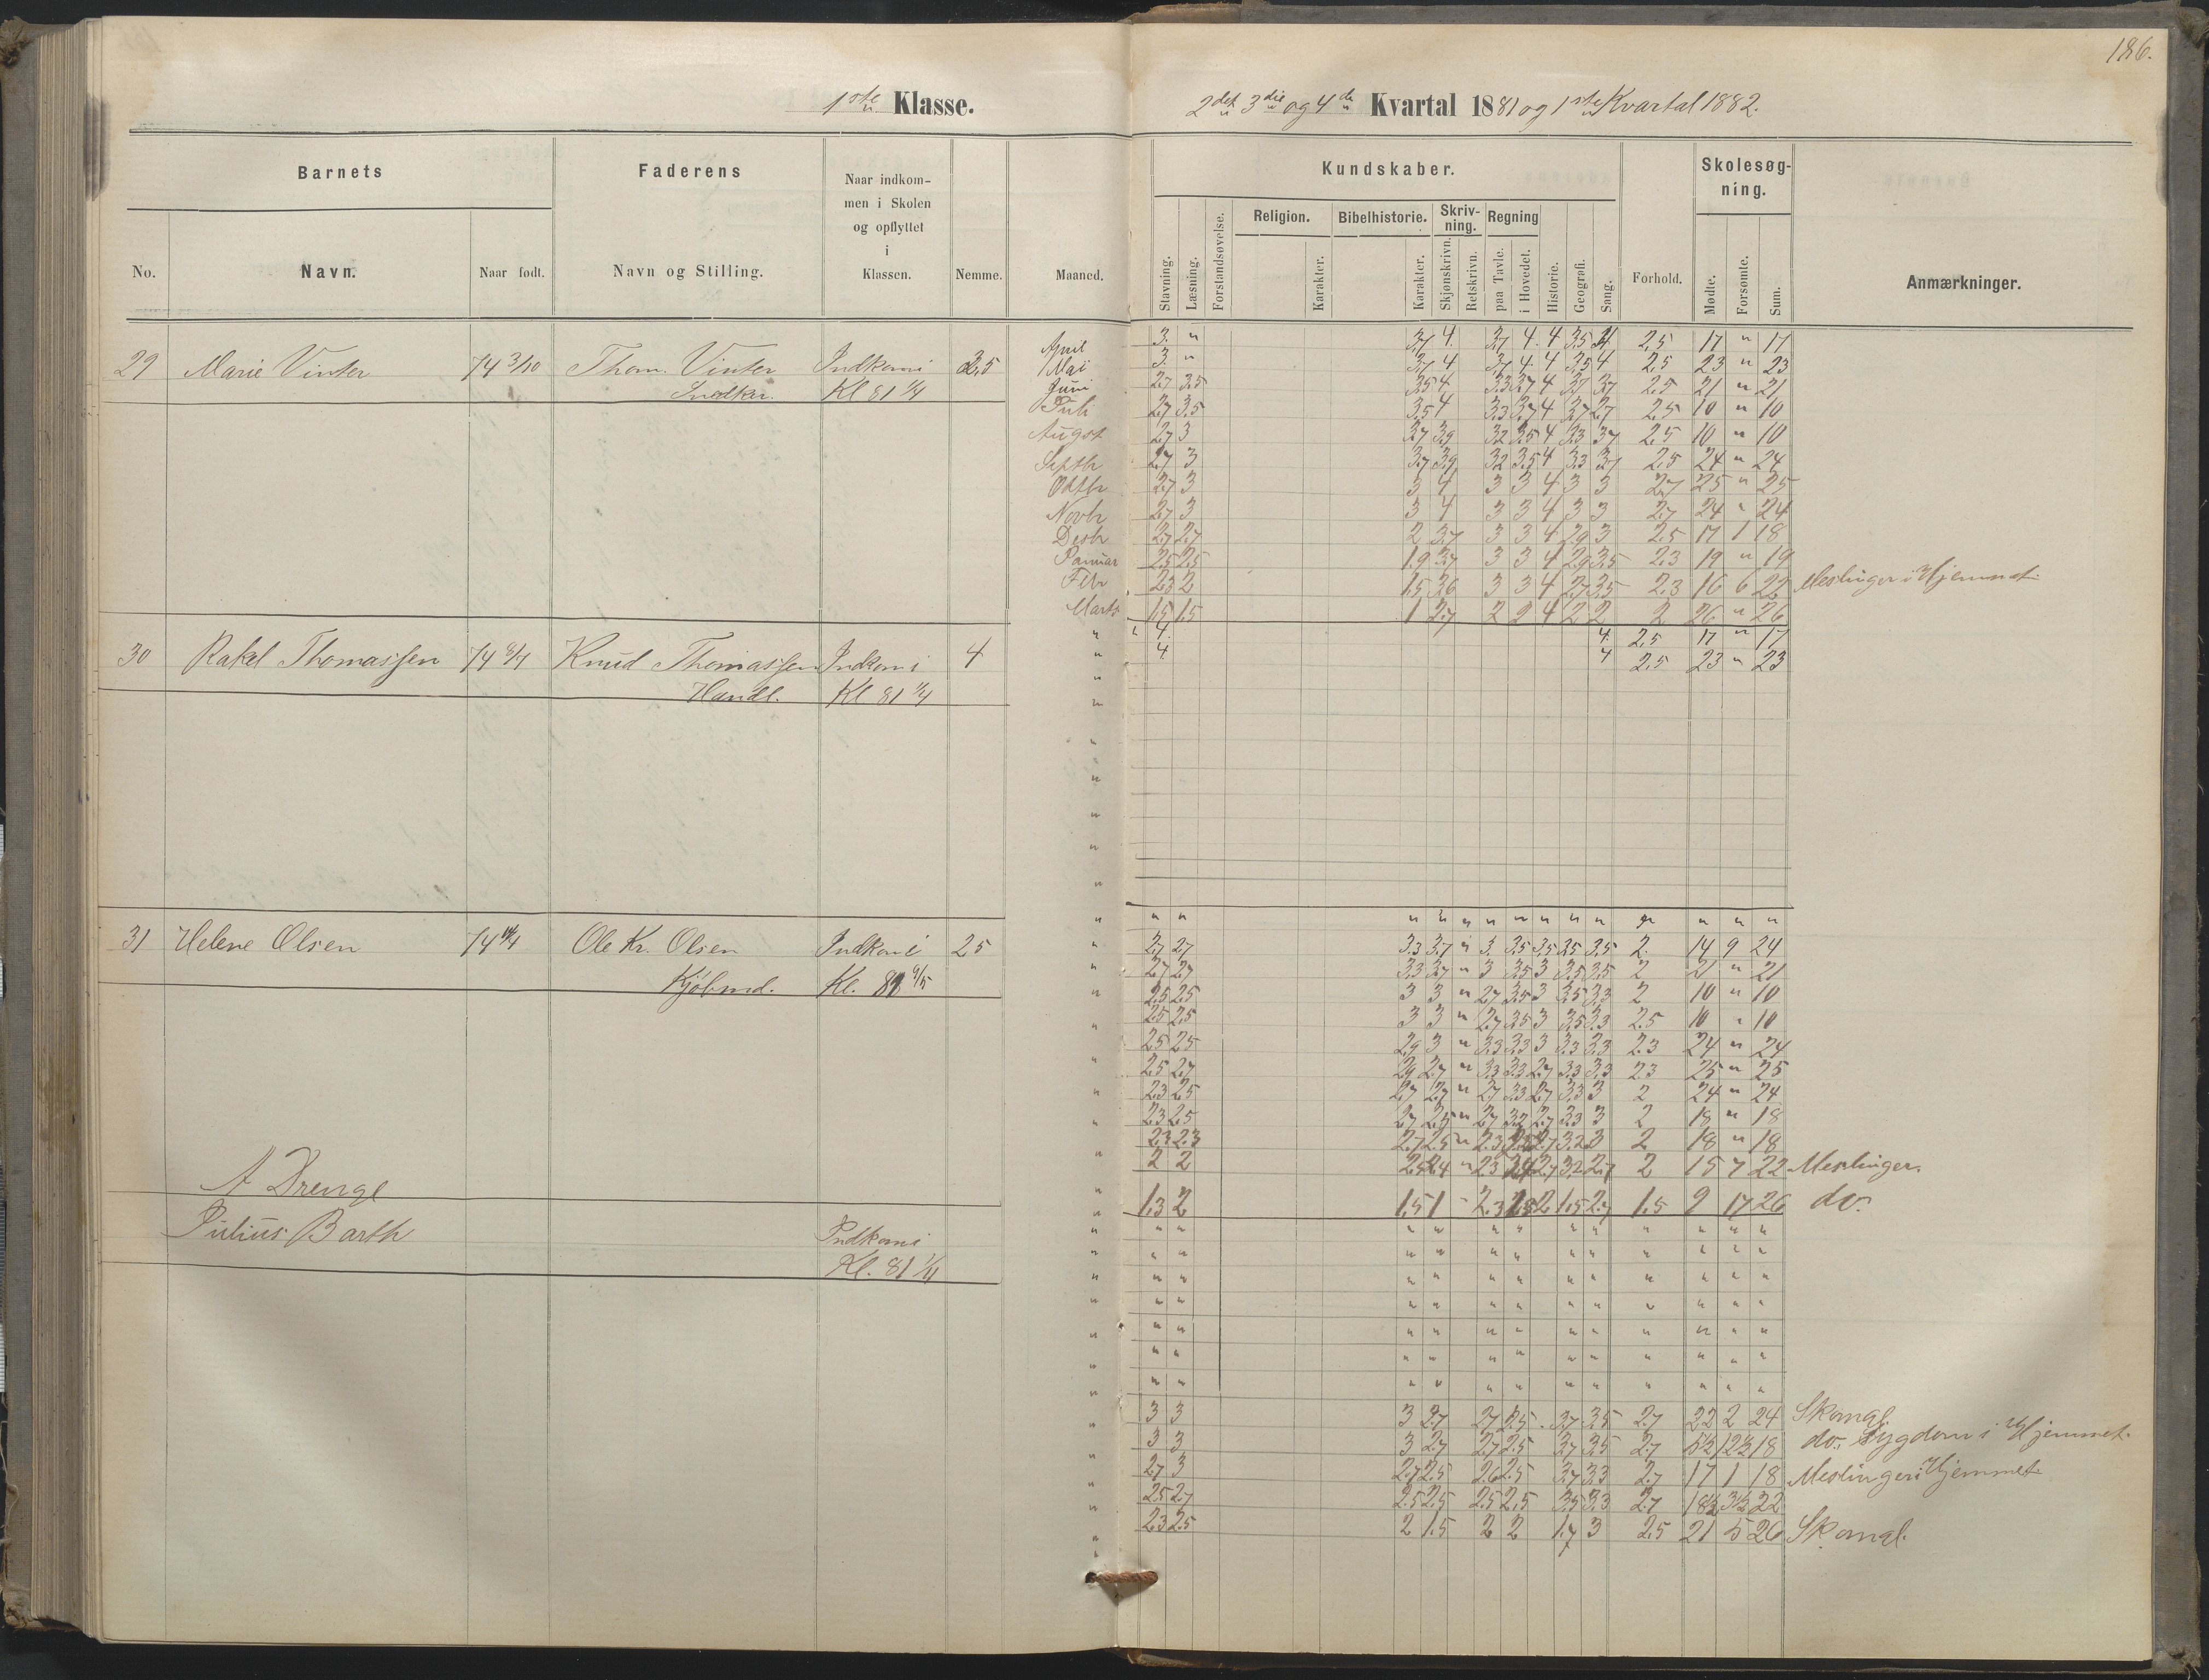 186.
1ste Klasse.
2det 3die og 4de Kvartal 1881 og 1ste Kvartal 1882.
Barnets
Faderens
Naar indkom-
men i Skolen
og opflyttet
i
Klassen.
No.
Navn.
Naar født.
Navn og Stilling.
Nemme.
Maaned.
Kundskaber.
Skolesøg-
ning.
Stavning.
Læsning.
Forstandsøvelse.
Religion.
Karakter.
Bibelhistorie.
Karakter.
Skriv-
ning.
Skjønskrivn.
Retskrivn.
Regning
paa Tavle.
i Hovedet.
Historie.
Geografi.
Sang.
Forhold.
Mødte.
Forsømte.
Sum.
Anmærkninger.
29 Marie Vinter 74 3/10 Thom. Vinter Indkom i
Snedker. Kl 81 1/4
April 3. " 3,7 4. 3,7 4. 4 3,5 4. 2,5 17 " 17
Mai 3. " 3,7 4 3,7 4. 4 3,5 4 2,5 23 " 23
Juni 2,7 3,5 3,5 4 3,3 3,7 4 3,7 3,7 2,5 21 " 21
Juli 2,7 3,5 3,5 4 3,3 3,7 4 3,7 2,7 2,5 10 " 10
Augst 2,7 3 3,7 3,9 3,2 3,5 4 3,3 3,7 2,5 10 " 10
Septbr 2,7 3 3,7 3,9 3,2 3,5 4 3,3 3,7 2,5 24 " 24
Octbr 2,7 3 3 4 3 3 4 3 3 2,7 25 " 25
Novbr 2,7 3 3 4 3 3 4 3 3 2,7 24 " 24
Desbr 2,7 2,7 2 3,7 3 3 4 2,9 3 2,5 17 1 18
Januar 2,5 2,5 1,9 3,7 3 3 4 2,9 3,5 2,3 19 " 19
Febr 2,3 2 1,5 3,6 3 3 4 2,7 3,5 2,3 16 6 22 Meslinger i Hjemmet.
Marts 1,5 1,5 1 2,7 2 2 4 2 2 2 26 " 26
30 Rakel Thomassen 74 Knud Thomassen Indkom i 4
Handl. Kl 81 1/4
" 4. 4. 2,5 17 " 17
" 4. 4 2,5 23 " 23
31 Helene Olsen 74 Ole Kr. Olsen Indkom i 2,5
Kjöbmd. Kl. 81 9/5
" " " " " " " " " " " " " "
2,7 2,7 3,3 3,7 " 3. 3,5 3,5 3,5 3,5 2. 14 9 24
2,7 2,7 3,3 3,7 " 3 3,5 3 3,5 3,5 2 21 " 21
2,5 2,5 3 3 " 2,7 3,5 3 3,5 3,3 2 10 " 10
2,5 2,5 3 3 " 2,7 3,5 3 3,5 3,3 2,5 10 " 10
2,5 2,5 2,9 3 " 3,3 3,3 3 3,3 3,3 2,3 24 " 24
2,5 2,7 2,9 2,7 " 3,3 3,3 2,7 3,3 3,3 2,3 25 " 25
2,3 2,5 2,7 2,7 " 2,7 3,3 2,7 3,3 3 2 24 " 24
2,3 2,5 2,7 2,5 " 2,7 3,2 2,7 3,3 3 2 18 " 18
2,3 2,3 2,7 2,5 " 2,3 2,7 3,2 3 2 18 " 18
2 2 2,5 2,4 " 2,3 2,4 2,7 3,2 2,7 2 15 7 22 Meslinger.
1,3 2 1,5 1 - 2,3 2 1,5 2,7 1,5 9 17 26 do.
A Drenge
Julius Barth Indkom i
Kl. 81 1/11
3 3 3 2,7 2,7 2,5 3,7 3,5 2,7 22 2 24 Skomgl.
3 3 3 2,7 2,7 2,5 3,7 3,5 2,7 5½ 12½ 18 do. Sygdom i Hjemmet.
2,7 3 2,7 2,5 2,6 2,5 3,7 3,3 2,7 17 1 18 Meslinger i Hjemmet
2,5 2,7 2,5 2,5 2,5 2,5 3,5 3,3 2,7 18½ 3½ 22
2,3 2,5 2 1,5 2 2 1,7 3 2,5 21 5 26 Skomgl.